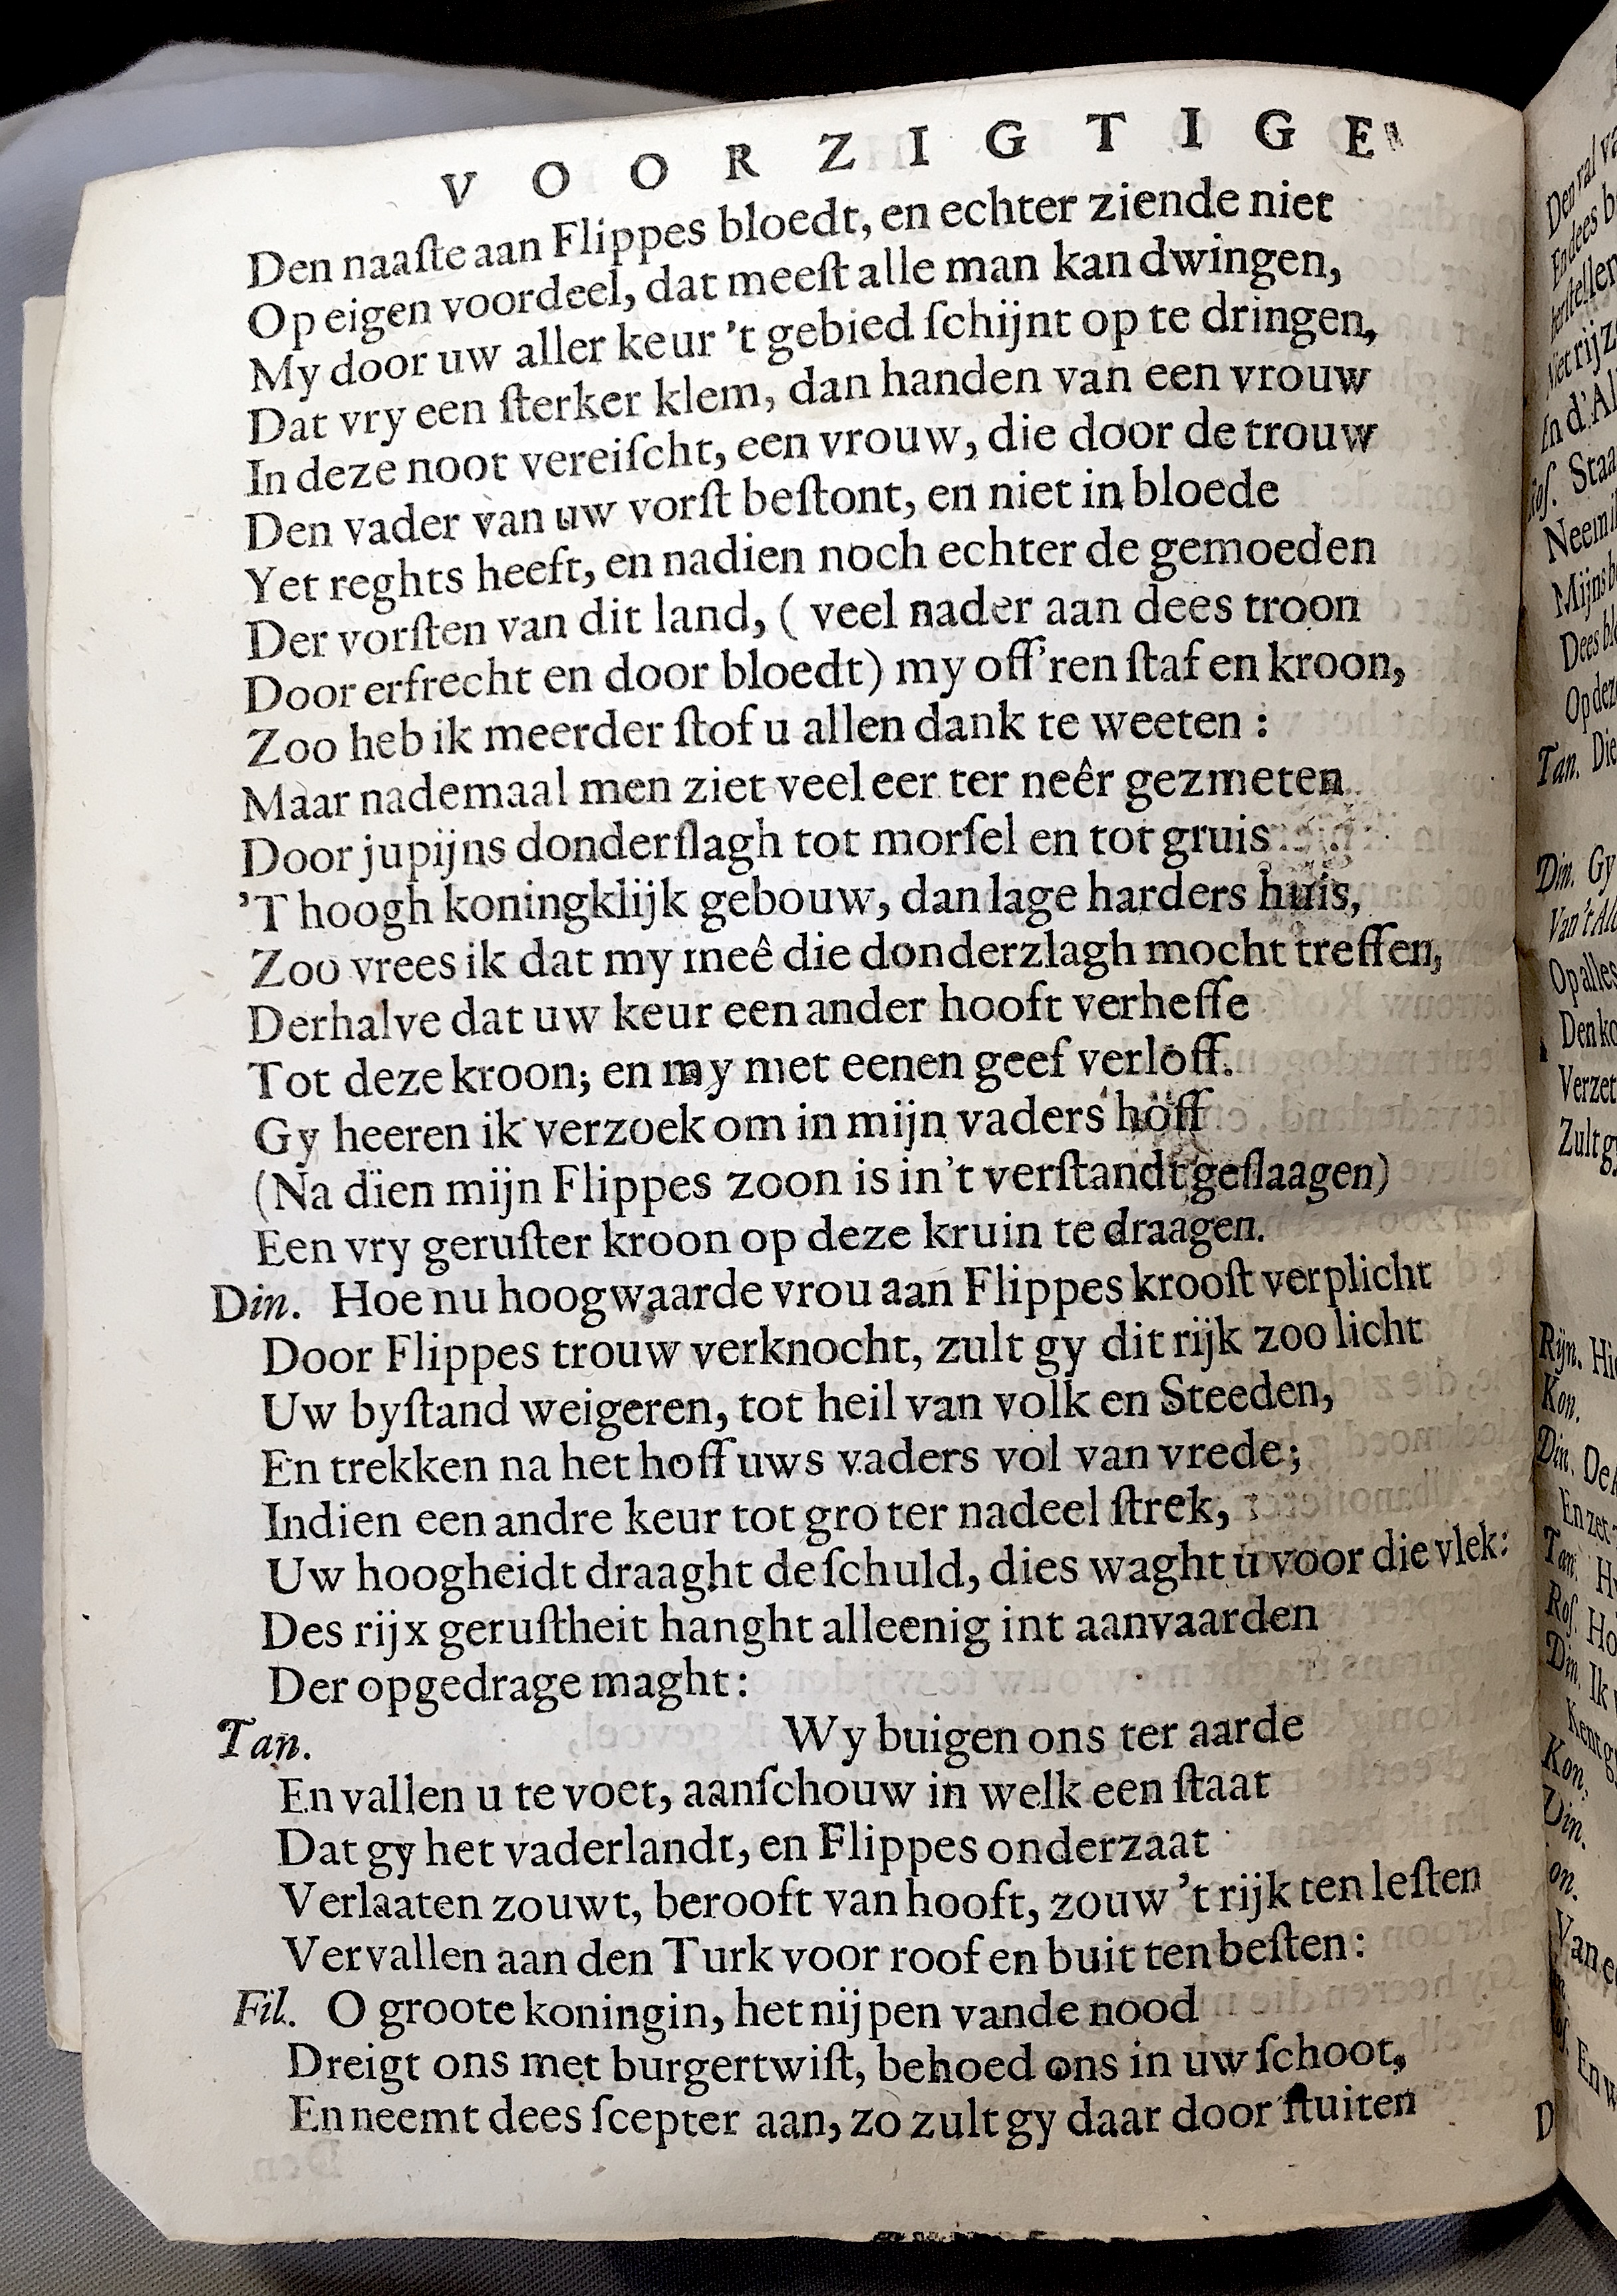 VOORZIGTIGE
Den naaſte aan Flippes bloedt, en echter ziende niet
Op eigen voordeel, dat meeſt alle man kan dwingen,
My door uw aller keur 't gebied ſchijnt op te dringen,
Dat vry een ſterker klem, dan handen van een vrouw
In deze noot vereiſcht, een vrouw, die door de trouw
Den vader van uw vorſt beſtont, en niet in bloede
Yet reghts heeft, en nadien noch echter de gemoeden
Der vorſten van dit land, ( veel nader aan dees troon
Door erfrecht en door bloedt) my off'ren ſtaf en kroon,
Zoo heb ik meerder ſtof u allen dank te weeten :
Maar nademaal men ziet veel eer ter neêr gezmeten
Door jupijns donderſlagh tot morſel en tot gruis
'T hoogh koningklijk gebouw, dan lage harders huis,
Zoo vrees ik dat my meê die donderzlagh mocht treffen,
Derhalve dat uw keur een ander hooft verheffe
Tot deze kroon; en my met eenen geef verloff.
Gy heeren ik verzoek om in mijn vaders hoff
(Na dien mijn Flippes zoon is in't verſtandt geſlaagen)
Een vry geruſter kroon op deze kruin te draagen.
Din. Hoe nu hoogwaarde vrou aan Flippes krooſt verplicht
Door Flippes trouw verknocht, zult gy dit rijk zoo licht
Uw byſtand weigeren, tot heil van volk en Steeden,
En trekken na het hoff uws vaders vol van vrede;
Indien een andre keur tot gro ter nadeel ſtrek,
Uw hoogheidt draaght de ſchuld, dies waght u voor die vlek:
Des rijx geruſtheit hanght alleenig int aanvaarden
Der opgedrage maght:
Tan. Wy buigen ons ter aarde
En vallen u te voet, aanſchouw in welk een ſtaat
Dat gy het vaderlandt, en Flippes onderzaat
Verlaaten zouwt, berooft van hooft, zouw 't rijk ten leſten
Vervallen aan den Turk voor roof en buit ten beſten:
Fil. O groote koningin, het nijpen vande nood
Dreigt ons met burgertwiſt, behoed ons in uw ſchoot,
En neemt dees ſcepter aan, zo zult gy daar door ſtuiten